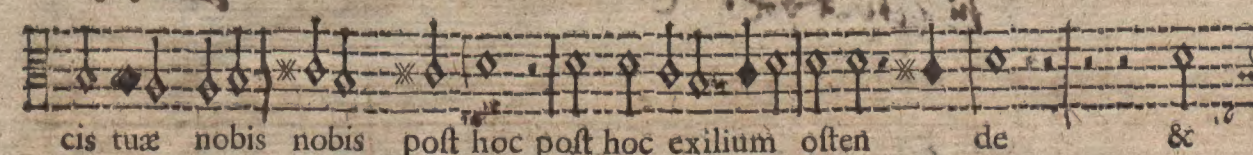 cis tuæ nobis nobis poſt hoc poſt hoc exilium oſten de &